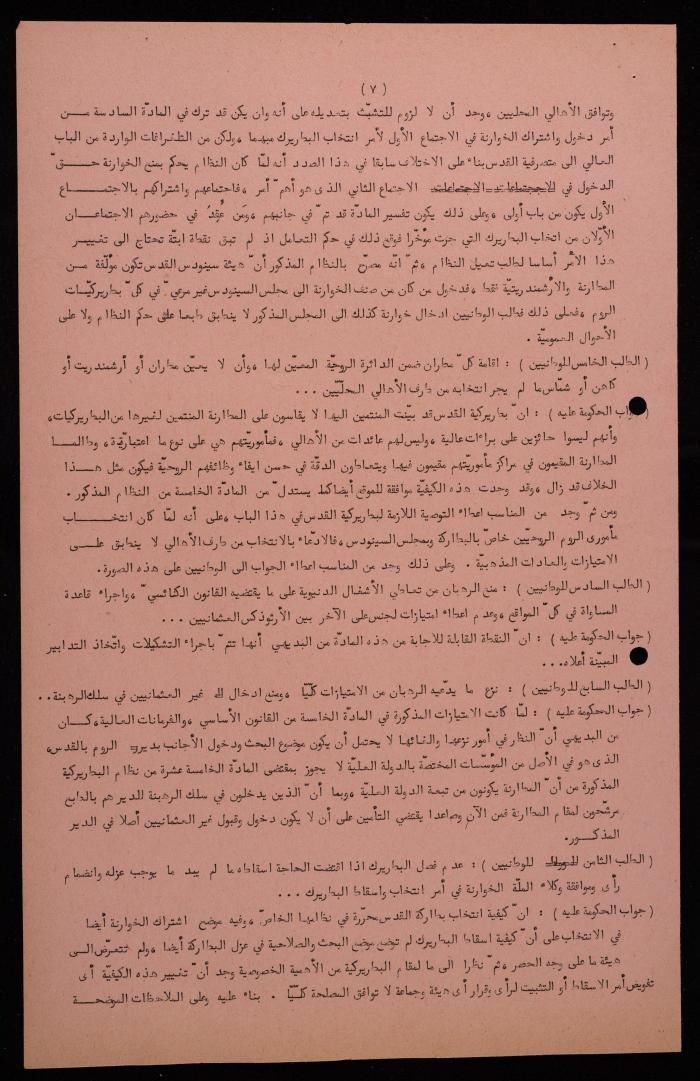 ( ٧ )
وتوافق الأهالي المحليين ، وجد أن لا لزوم للتشبّث بتعديله على أنه وان يكن قد ترك في المادّة السادسة مــن
أمر دخول واشتراك الخوارنة في الاجتماع الأول لأمر انتخاب البطريرك مبهما ، ولكن من التلغرافات الواردة من الباب
العالي الى متصرفية القدس بناء على الاختلاف سابقا في هذا الصدد أنه لمّا كان النظام يحكم بمنح الخوارنة حــق
الدخول في الاجتماع الثاني الذي هو أهمّ أمر ، فاجتماعهم واشتراكهم بالاجتمــاع
الأول يكون من باب أولى ، وعلى ذلك يكون تفسير المادّة قد تمّ في جانبهم ، ومَن عُقِدَ في حضورهم الاجتماعــان
الأوّلان من انتخاب البطريرك التي جرت مؤخّرا فوقع ذلك في حكم التعامل اذ لم تبق نقطة ابتّة تحتاج الى تغيــير
هذا الأمر أساسا لطلب تعديل النظام ، ثمّ انّه مصرّح بالنظام المذكور أنّ هيئة سينودس القدس تكون مؤلّفة مــن
المطارنة والأرشمندريتيّة فقط ، فدخول من كان من صنف الخوارنة الى مجلس السينودس غير مرعيّ في كلّ بطريركيّــات
الروم ، فعلى ذلك فطلب الوطنيين ادخال خوارنة كذلك الى المجلس المذكور لا ينطبق طبعا على حكم النظام ولا على
الأحوال العموميّة .
( الطلب الخامس للوطنيين ) : اقامة كلّ مطران ضمن الدائرة الروحيّة المعيّن لها ، وأن لا يعيّن مطران أو أرشمندريت أو
كاهن أو شمّاس ما لم يجر انتخابه من طرف الأهالي المحلّيّين ...
( جواب الحكومة عليه ) : انّ بطريركية القدس قد بيّنت المنتمين اليها لا يقاسون على المطارنة المنتمين لغيرها من البطريركيات ،
وأنهم ليسوا حائزين على براءات عالية ، وليس لهم عائدات من الأهالي ، فمأموريّتهم هي على نوع ما اعتباريّة ، وطالمــا
المطارنة المقيمون في مراكز مأموريّتهم مقيمون فيها ويتعاطون الدقّة في حسن ايفاء وظائفهم الروحيّة فيكون مثل هــذا
الخلاف قد زال ، وقد وجدت هذه الكيفيّة موافقة للموقع أيضا كما يستدلّ من المادّة الخامسة من النظام المذكور .
ومن ثمّ وجد من المناسب اعطاء التوصية اللازمة لبطريركية القدس في هذا الباب ، على أنه لمّا كان انتخــاب
مأموري الروم الروحيّين خاصّ بالبطاركة وبمجلس السينودس ، فالادّعاء بالانتخاب من طرف الأهالي لا ينطبق علــى
الامتيازات والعادات المذهبيّة . وعلى ذلك وجد من المناسب اعطاء الجواب الى الوطنيين على هذه الصورة .
( الطلب السادس للوطنيين ) : منع الرهبان من تعاطي الأشغال الدنيوية على ما يقتضيه القانون الكنائسيّ ، واجراء قاعدة
المساواة في كلّ المواقع ، وعدم اعطاء امتيازات لجنس على الآخر بين الأرثوذكس العثمانيين ...
( جواب الحكومة عليه ) : انّ النقطة القابلة للاجابة من هذه المادّة من البديهي أنها تتمّ باجراء التشكيلات واتّخاذ التدابير
المبيّنة أعلاه ...
( الطلب السابع للوطنيين ) : نزع ما يدّعيه الرهبان من الامتيازات كلّيّا ، ومنع ادخال غير العثمانيين في سلك الرهبنة ..
( جواب الحكومة عليه ) : لمّا كانت الامتيازات المذكورة في المادّة الخامسة من القانون الأساسي ، والفرمانات العالية ، كــان
من البديهي أنّ النظر في أمور نزعها والغائها لا يحتمل أن يكون موضوع البحث ودخول الأجانب بديرو الروم بالقدس ،
الذي هو في الأصل من المؤسّسات المختصّة بالدولة العليّة لا يجوز بمقتضى المادّة الخامسة عشرة من نظام البطريركية
المذكورة من أنّ المطارنة يكونون من تبعة الدولة العليّة ، وبما أنّ الذين يدخلون في سلك الرهبنة للدير هم بالطبع
مرشّحون لمقام المطارنة فمن الآن وصاعدا يقتضي التأمين على أن لا يكون دخول وقبول غير العثمانيين أصلا في الدير
المذكــور .
( الطلب الثامن للوطنيين ) : عدم فصل البطريرك اذا اقتضت الحاجة اسقاطه ما لم يبد ما يوجب عزله وانضمام
رأي وموافقة وكلاء الملّة الخوارنة في أمر انتخاب واسقاط البطريرك ...
( جواب الحكومة عليه ) : انّ كيفية انتخاب بطاركة القدس محرّرة في نظامها الخاصّ ، وفيه موضع اشتراك الخوارنة أيضا
في الانتخاب على أنّ كيفية اسقاط البطريرك لم توضع موضع البحث والصلاحية في عزل البطاركة أيضا ، ولم تتعرّض الــى
هيئة ما على وجه الحصر ، ثمّ نظرا الى ما لمقام البطريركية من الأهمية الخصوصية وجد أنّ تغيير هذه الكيفيّة أي
تفويض أمر الاسقاط أو التثبيت لرأي وقرار أي هيئة وجماعة لا توافق المصلحة كلّيّا . بناء عليه وعلى الملاحظات الموضحــة